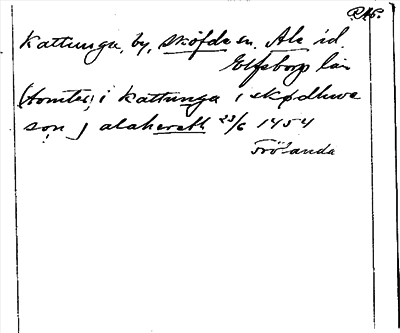 RAp.
Kattunga, by, Sköfde sn. Ale hd.
Elfsborgs län
(tomter) i kattunga i skødhwe
søn j alahereth 23/6 1454
Frölanda